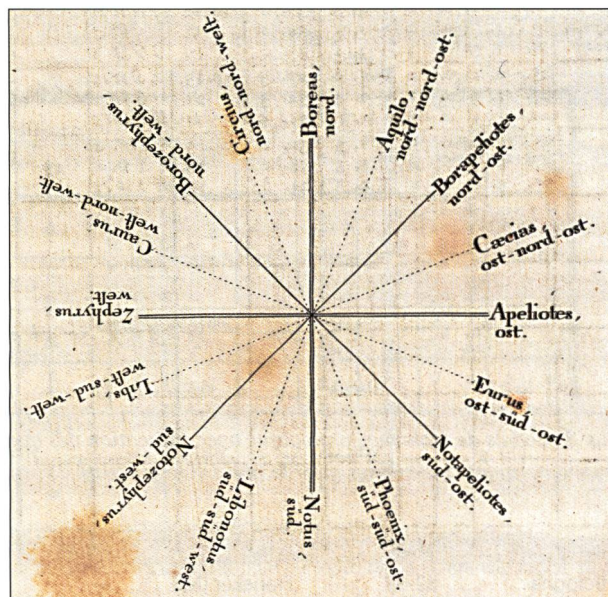 Boreas,
nord.
Aquilo,
nord-nord-ost.
Borapeliotes,
nord-ost.
Cæcias,
ost-nord-ost.
Apeliotes,
ost.
Eurus,
ost-süd-ost.
Notapeliotes,
süd-ost.
Phoenix,
süd-süd-ost.
Notus,
süd.
Libonotus,
sud-sud-west.
Notozephyrus,
sud-west.
Libs,
weſt-sud-weſt.
Zephyrus,
weſt.
Caurus,
weſt-nord-weſt.
Borozephyrus
nord-weſt.
Circius,
nord-nord-weſt.